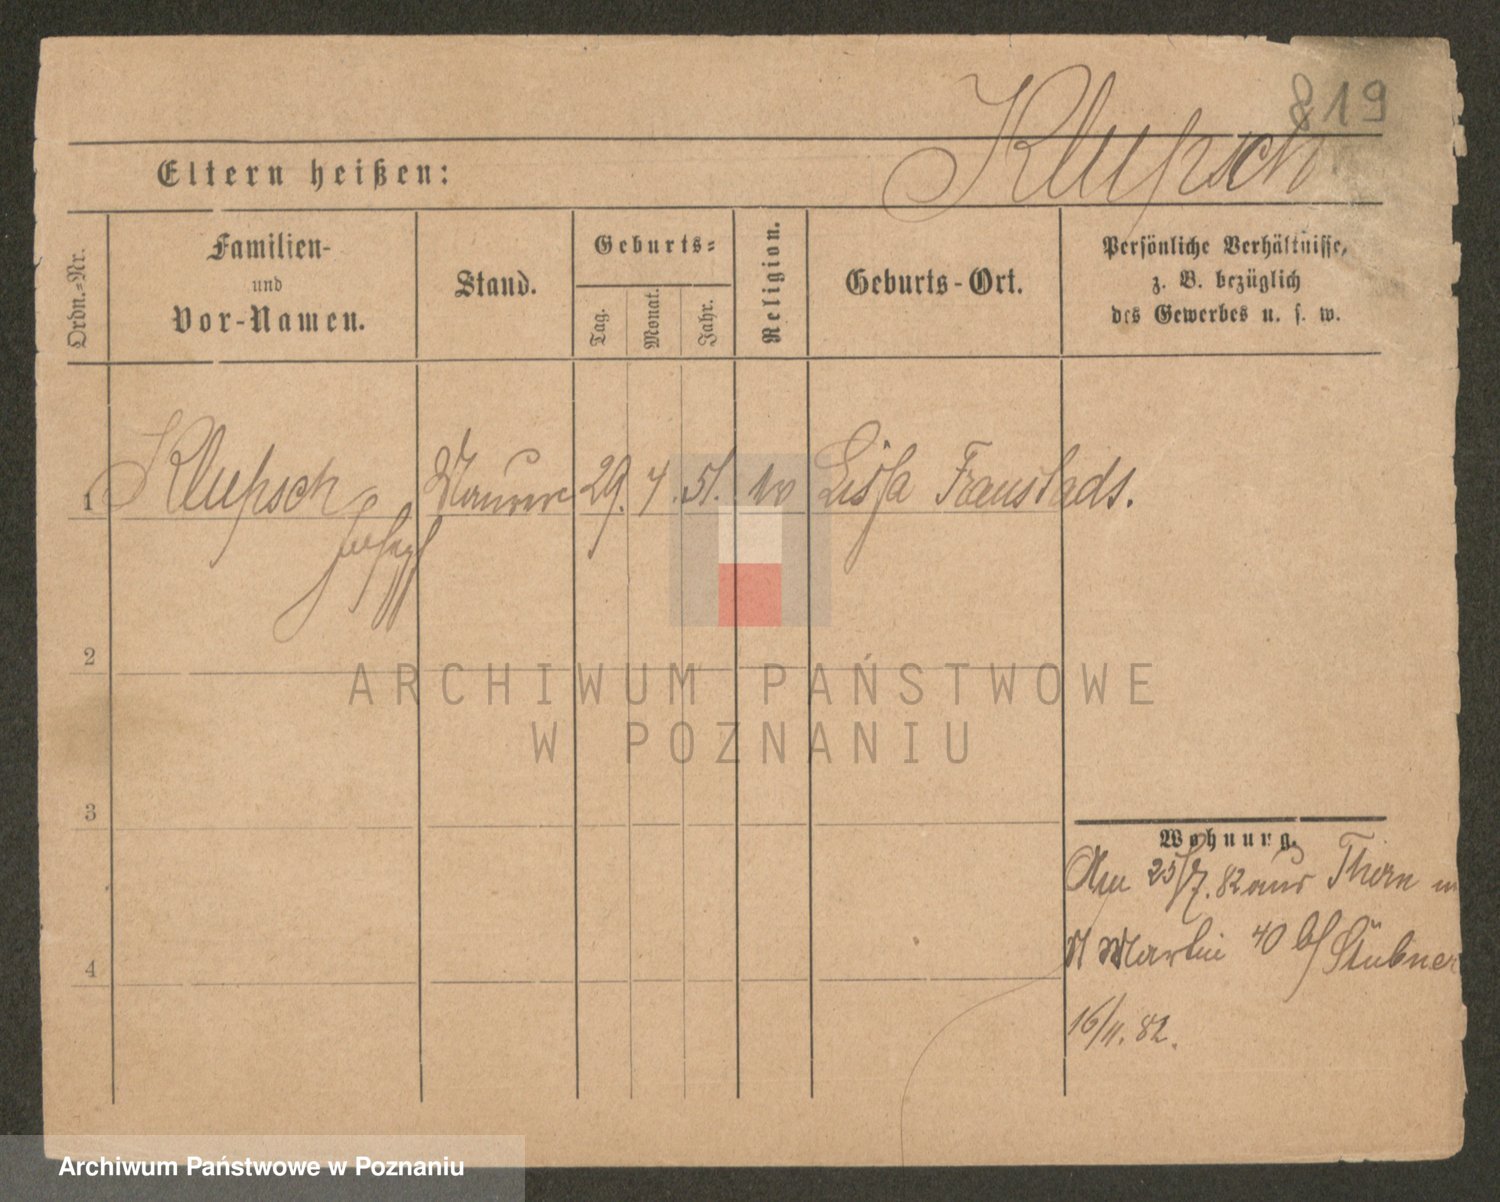 819
Klupsch
Eltern heißen:
Ordn.=Nr.
Familien-
und
Vor-Namen.
Stand.
Geburts=
Tag.
Monat.
Jahr.
Religion.
Geburts-Ort.
Persönliche Verhältnisse,
z. B. bezüglich
des Gewerbes u. s. w.
1 Klupsch Maurer 29. 4. 51. Lissa Fraustadt.
Joseph
2
ARCHIWUM PAŃSTWOWE
W POZNANIU
3
Wohnung.
Am 25/7. 82 aus Thorn
St Martin 40 b/ Stübner
4
16/11. 82.
Archiwum Państwowe w Poznaniu